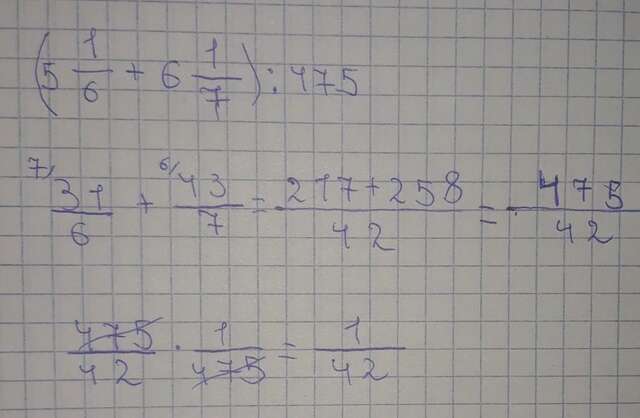 (5 1/6 + 6 1/7) : 475
7/ 31/6 + 6/ 43/7 = 217+258/42 = 475/42
475/42 · 1/475 = 1/42